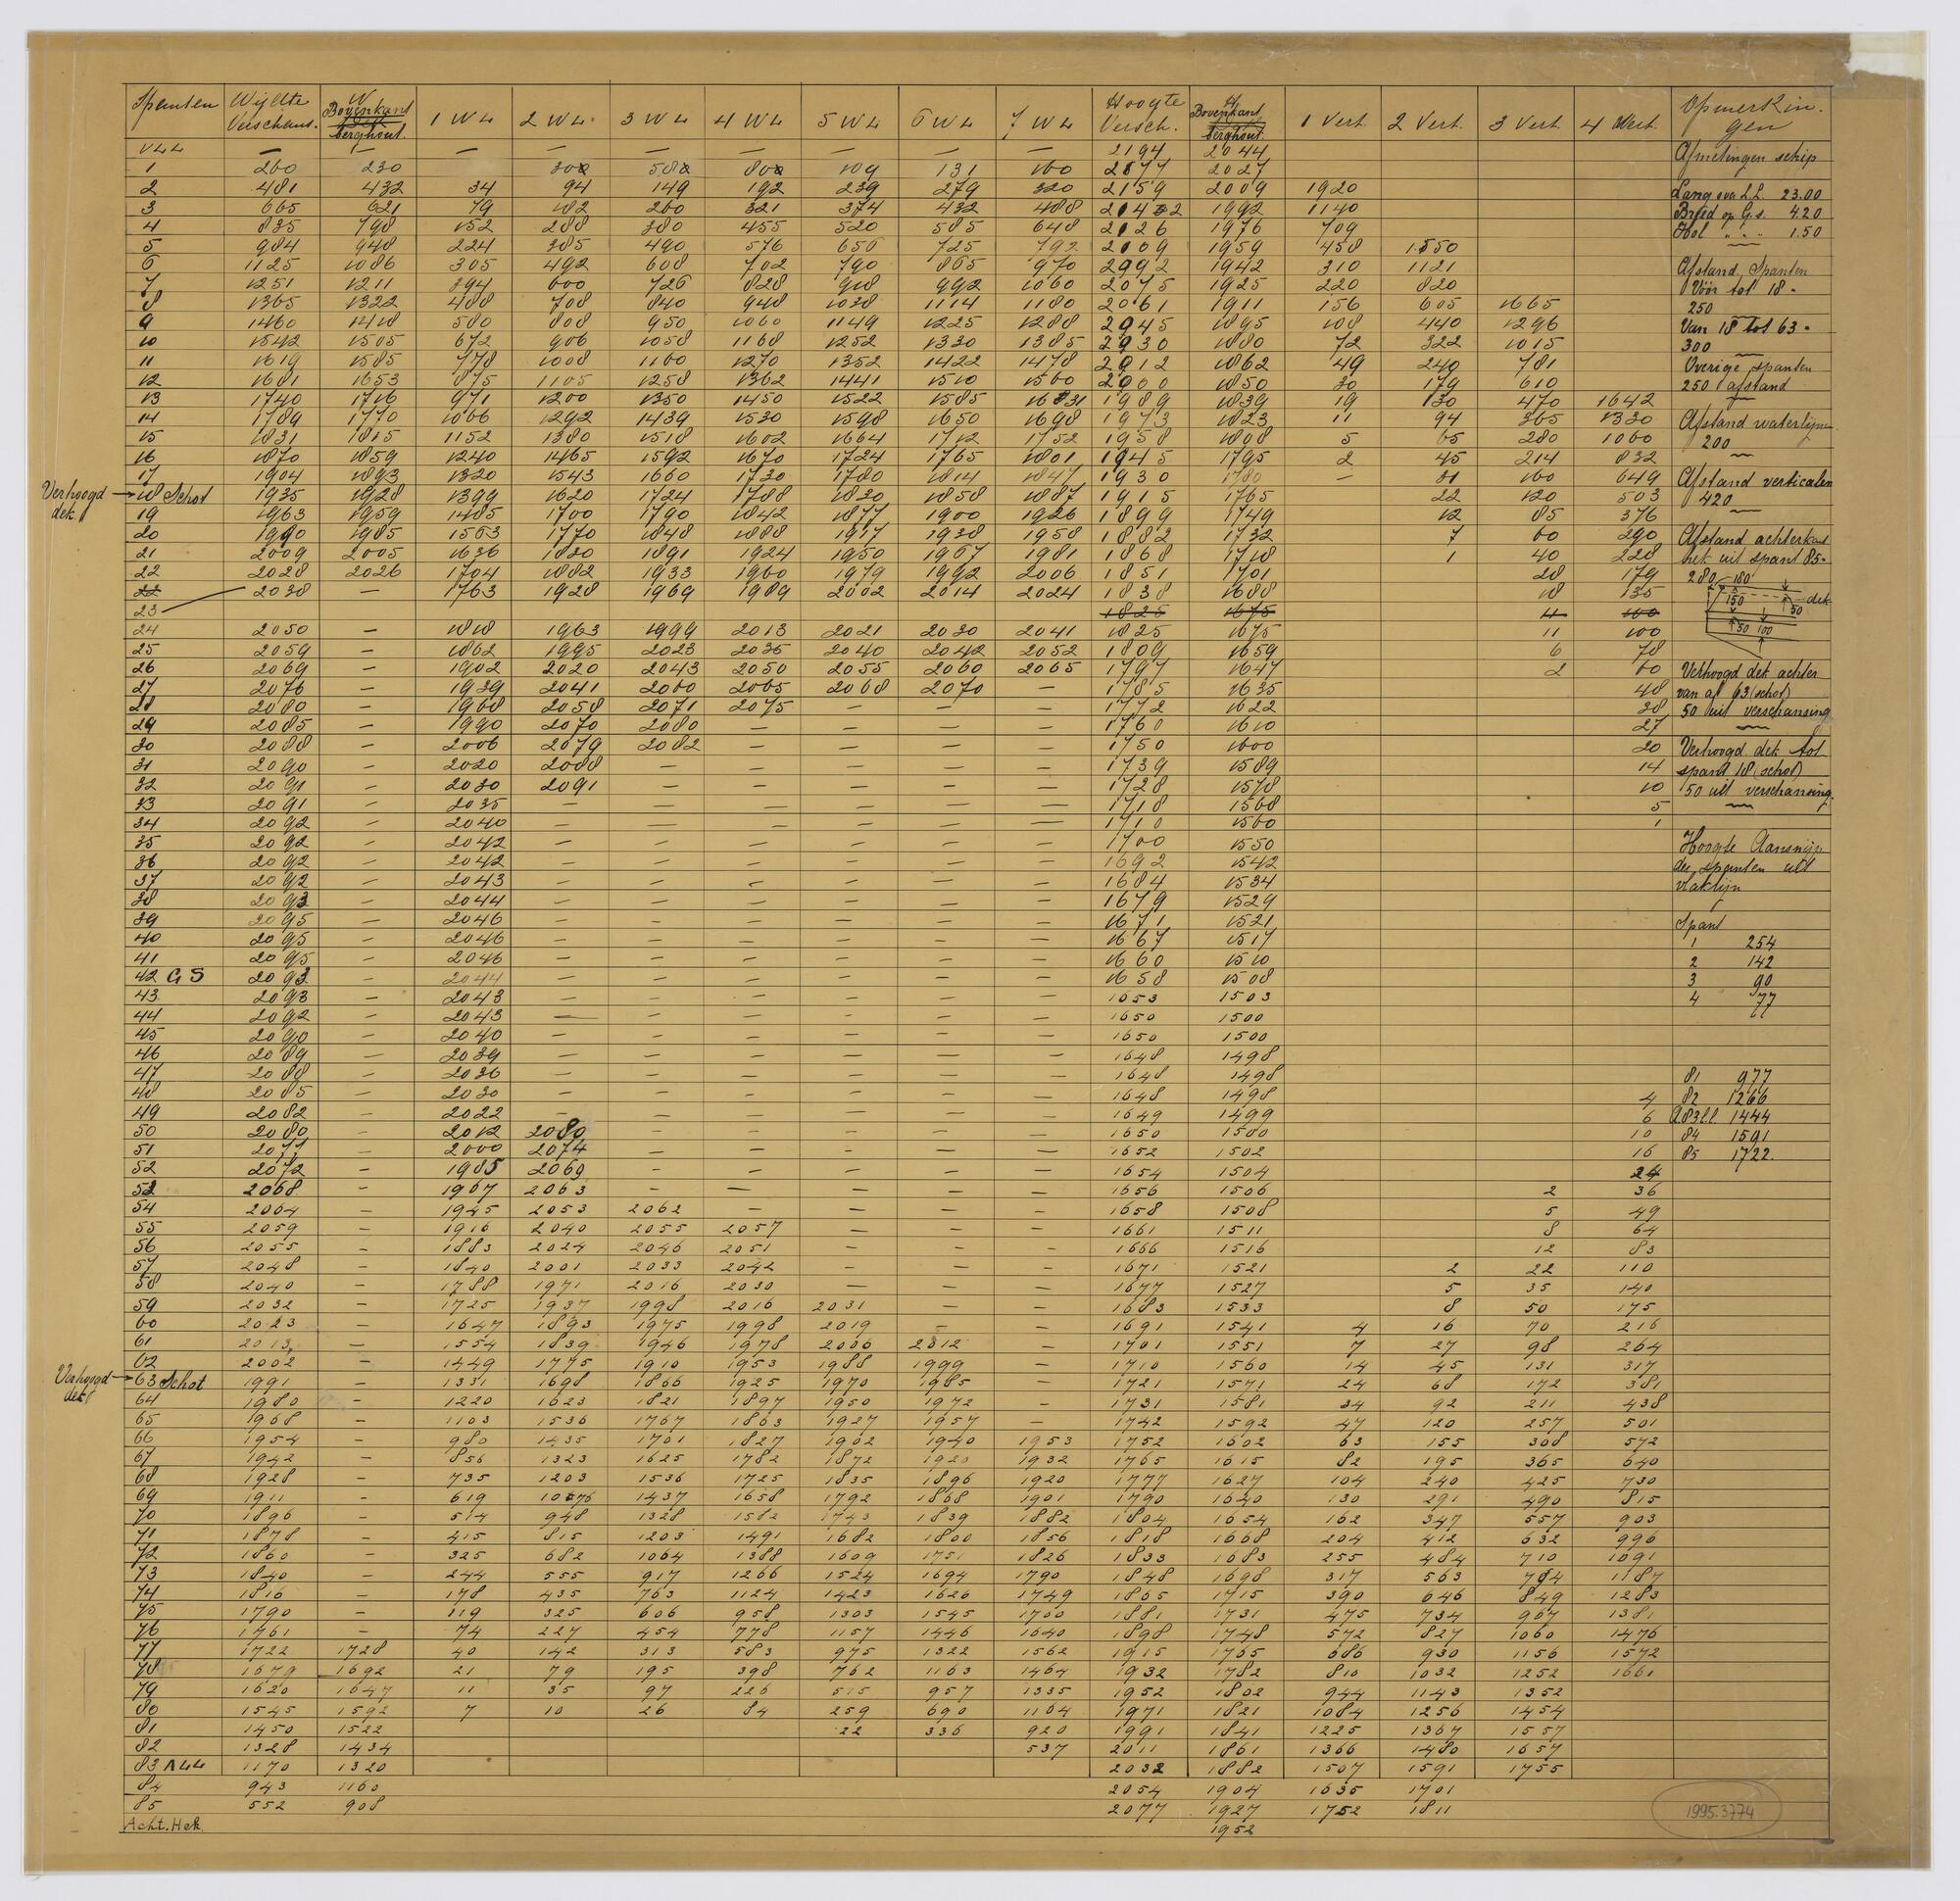 Spanten Wijdte Verschans. W Bovenkant berghout. 1 WL 2 WL 3 WL 4 WL 5 WL 6 WL 7 WL Hoogte Versch. H Bovenkant berghout. 1 Vert. 2 Vert. 3 Vert. 4 Vert. Opmerkingen
VLL — — — — — — — — 2194 2044
1 260 230
2 481 432 34 94 149 192 239 279 320 2159 2009 1920
3 665 621
4 835 798 152 288 380 455 520 585 648 2126 1976 709
5 984 948 224 385 490 576 650 725 792 2109 1959 458 1550
6 1125 1086 305 492 608 702 790 865
7 1251 1211 394 600 726 828 918 992 1060 2075 1925 220 820
8 1365 1322 488 708 840 948 1038 1114 1180 2061 1911 156 605 1665
9 1460 1418 580 808 950 1060 1149 1225 1288
10 1542 1505 672 906 1058 1168 1252 1330 1385
11 1619 1585 778 1008 1160 1270 1352 1422 1478
12 1681 1653 875 1105 1258 1362 1441 1510 1560
13 1740 1716 971 1200 1350 1450 1522 1585
14 1789 1770 1066 1292 1439 1530 1598 1650 1698 1973 1823 11 94 365 1330
15 1831 1815 1152 1380 1518 1602 1664 1712 1752 1958 1808 5 65 280 1060
16 1870 1859 1240 1465 1592 1670 1724 1765 1801 1945 1795 2 45 214 832
17 1904 1893 1320 1543 1660 1730 1780 1814 1847 1930 1780 — 31 160 649
Verhoogd dek
18 Schot 1935 1928 1399 1620 1724 1788 1830 1858 1887 1915 1765 22 120 503
19 1963 1959 1485 1700 1790 1842 1877 1900 1926 1899 1749 12 85 376
20 1990 1985 1563 1770 1848 1888 1917 1938 1958 1882 1732 7 60 290
21 2009 2005 1636 1830 1891 1924 1950 1967 1981 1868 1718 1 40 228
22 2028 2026 1704 1882 1933 1960 1979 1992 2006 1851 1701 28 179
23 2038 — 1763 1928 1969 1989 2002 2014 2024 1838 1688 18 135
1825 1675 11 100
24 2050 — 1818 1963 1999 2013 2021 2030 2041 1825 1675 11 100
25 2059 — 1862 1995 2023 2036 2040 2042 2052 1809 1659 6 78
26 2069 — 1902 2020 2043 2050 2055 2060 2065 1797 1647 2 60
27 2076 — 1939 2041 2060 2065 2068 2070 — 1785 1635 48
28 2080 — 1968 2058 2071 2075 — — — 1772 1622 38
29 2085 — 1990 2070 2080 — — — — 1760 1610 27
30 2088 — 2006 2079 2082 — — — — 1750 1600 20
31 2090 — 2020 2088 — — — — — 1739 1589 14
32 2091 — 2030 2091 — — — — — 1728 1578 10
33 2091 — 2035 — — — — — — 1718 1568 5
34 2092 — 2040 — — — — — — 1710 1560 1
35 2092 — 2042 — — — — — — 1700 1550
36 2092 — 2042 — — — — — — 1692 1542
37 2092 — 2043 — — — — — — 1684 1534
38 2093 — 2044 — — — — — — 1679 1529
39 2095 — 2046 — — — — — — 1671 1521
40 2095 — 2046 — — — — — — 1667 1517
41 2095 — 2046 — — — — — — 1660 1510
42 GS 2093 — 2044 — — — — — — 1658 1508
43 2093 — 2043 — — — — — — 1653 1503
44 2092 — 2043 — — — — — — 1650 1500
45 2090 — 2040 — — — — — — 1650 1500
46 2089 — 2039 — — — — — — 1648 1498
47 2088 — 2036 — — — — — — 1648 1498
48 2085 — 2030 — — — — — — 1648 1498 4
49 2082 — 2022 — — — — — — 1649 1499 6
50 2080 — 2012 2080 — — — — — 1650 1500 10
51 2077 — 2000 2074 — — — — — 1652 1502 16
52 2072 — 1985 2069 — — — — — 1654 1504 24
53 2068 — 1967 2063 — — — — — 1656 1506 2 36
54 2064 — 1945 2053 2062 — — — — 1658 1508 5 49
55 2059 — 1916 2040 2055 2057 — — — 1661 1511 8 64
56 2055 — 1883 2024 2046 2051 — — — 1666 1516 12 83
57 2048 — 1840 2001 2033 2042 — — — 1671 1521 2 22 110
58 2040 — 1788 1971 2016 2030 — — — 1677 1527 5 35 140
59 2032 — 1725 1937 1998 2016 2031 — — 1683 1533 8 50 175
60 2023 — 1647 1893 1975 1998 2019 — — 1691 1541 4 16 70 216
61 2013 — 1554 1839 1946 1978 2006 2012 — 1701 1551 7 27 98 264
62 2002 — 1449 1775 1910 1953 1988 1999 — 1710 1560 14 45 131 317
Verhoogd dek
63 Schot 1991 — 1331 1698 1866 1925 1970 1985 — 1721 1571 24 68 172 381
64 1980 — 1220 1623 1821 1897 1950 1972 — 1731 1581 34 92 211 438
65 1968 — 1103 1536 1767 1863 1927 1957 — 1742 1592 47 120 257 501
66 1954 — 980 1435 1701 1827 1902 1940 1953 1752 1602 63 155 308 572
67 1942 — 856 1323 1625 1782 1872 1920 1932 1765 1615 82 195 365 640
68 1928 — 735 1203 1536 1725 1835 1896 1920 1777 1627 104 240 425 730
69 1911 — 619 1076 1437 1658 1792 1868 1901 1790 1640 130 291 490 815
70 1896 — 514 948 1328 1582 1743 1839 1882 1804 1654 162 347 557 903
71 1878 — 415 815 1203 1491 1682 1800 1856 1818 1668 204 412 632 996
72 1860 — 325 682 1064 1388 1609 1751 1826 1833 1683 255 484 710 1091
73 1840 — 244 555 917 1266 1524 1694 1790 1848 1698 317 563 784 1187
74 1816 — 178 435 763 1124 1423 1626 1749 1865 1715 390 646 849 1283
75 1790 — 119 325 606 958 1303 1545 1700 1881 1731 475 734 967 1381
76 1761 — 74 227 454 778 1157 1446 1640 1898 1748 572 827 1060 1476
77 1722 1728 40 142 313 583 975 1322 1562 1915 1765 686 930 1156 1572
78 1679 1692 21 79 195 398 762 1163 1464 1932 1782 810 1032 1252 1661
79 1620 1647 11 35 97 226 515 957 1335 1952 1802 944 1143 1352
80 1545 1592 7 10 26 84 259 690 1164 1971 1821 1084 1256 1454
81 1450 1522 22 336 920 1991 1841 1225 1367 1557
82 1328 1434 537 2011 1861 1366 1480 1657
83 ALL 1170 1320 2032 1882 1507 1591 1755
84 943 1160 2054 1904 1635 1701
85 552 908 2077 1927 1752 1811
Acht. Hek. 1952
Afmetingen schip
Lang over LL. 23.00
Breed op G.s. 4.20
Hol " " 1.50
Afstand Spanten
Vóór tot 18 -
250
Van 18 tot 63 -
300
Overige spanten
250 afstand
Afstand waterlijnen
200
Afstand verticalen
420
Afstand achterkant
hek uit spant 85 -
280 180
150 dek
50
50 100
Verhoogd dek achter
van af 63 (schot)
50 uit verschansing
Verhoogd dek tot
spant 18 (schot)
50 uit verschansing
Hoogte Aansnijp.
der spanten uit
vlaklijn
Spant
1 254
2 142
3 90
4 77
81 977
82 1266
A83LL 1444
84 1591
85 1722.
1995.3774